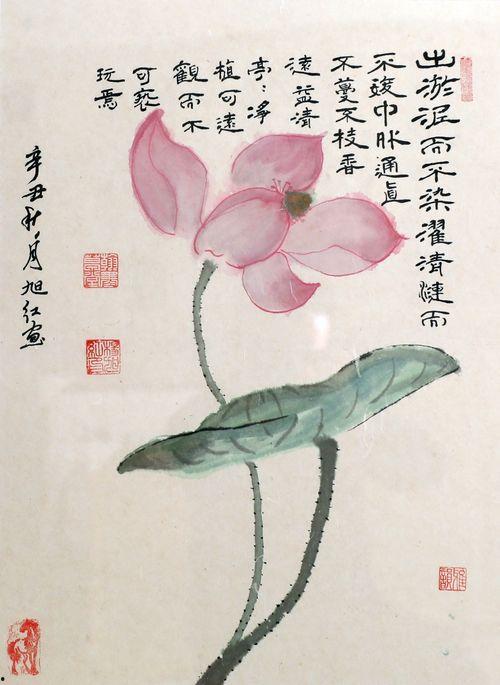 出淤泥而不染濯清漣而
不妖中脉通直
不蔓不枝香
遠益清
亭：淨
植可遠
觀而不
可褻
玩焉
辛丑秋月旭红畫